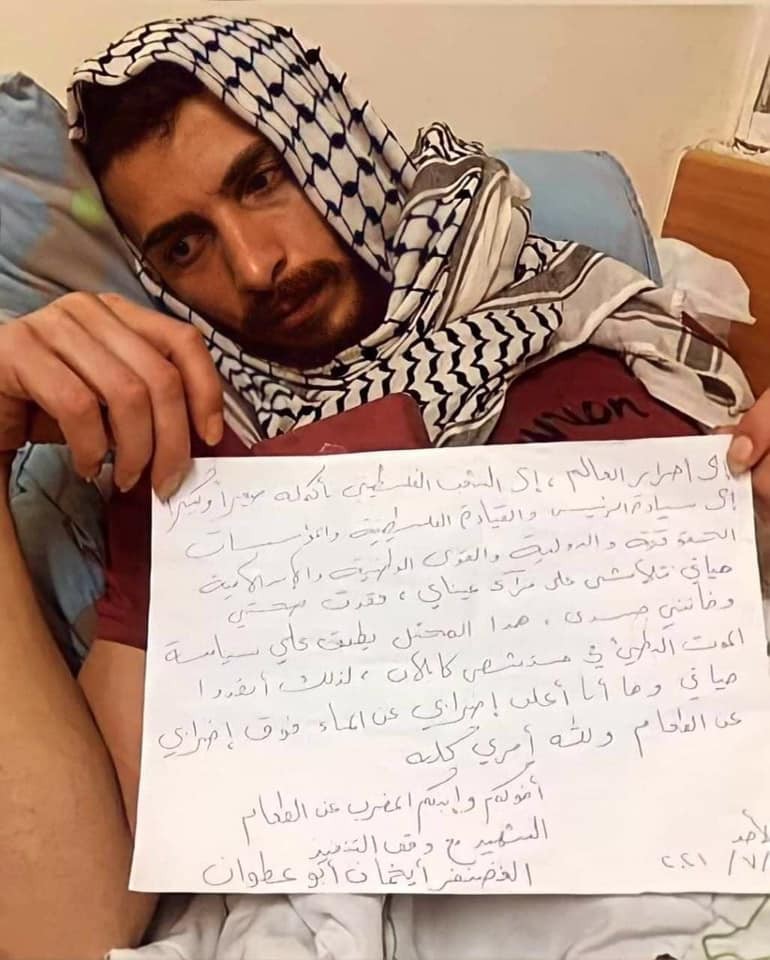 union
إلى أحرار العالم، إلى الشعب الفلسطيني بأكمله صغيراً وكبيراً
إلى سيادة الرئيس والقيادة الفلسطينية والمؤسسات
الحقوقية والدولية والقوى الوطنية والإسلامية
حياتي تتلاشى على مرآى عيناي، فقدت صحتي
وخانني جسدي، هذا المحتل يطبق علي سياسة
الموت البطيئ في مستشفى كابلان، لذلك أنقذوا
حياتي وها أنا أعلن إضرابي عن الماء فوق إضرابي
عن الطعام ولله أمري كله
أخوكم وابنكم المضرب عن الطعام
الشهيد مع وقف التنفيذ
الغضنفر أيخمان أبو عطوان
الأحد
/٧/ ٢٠٢١